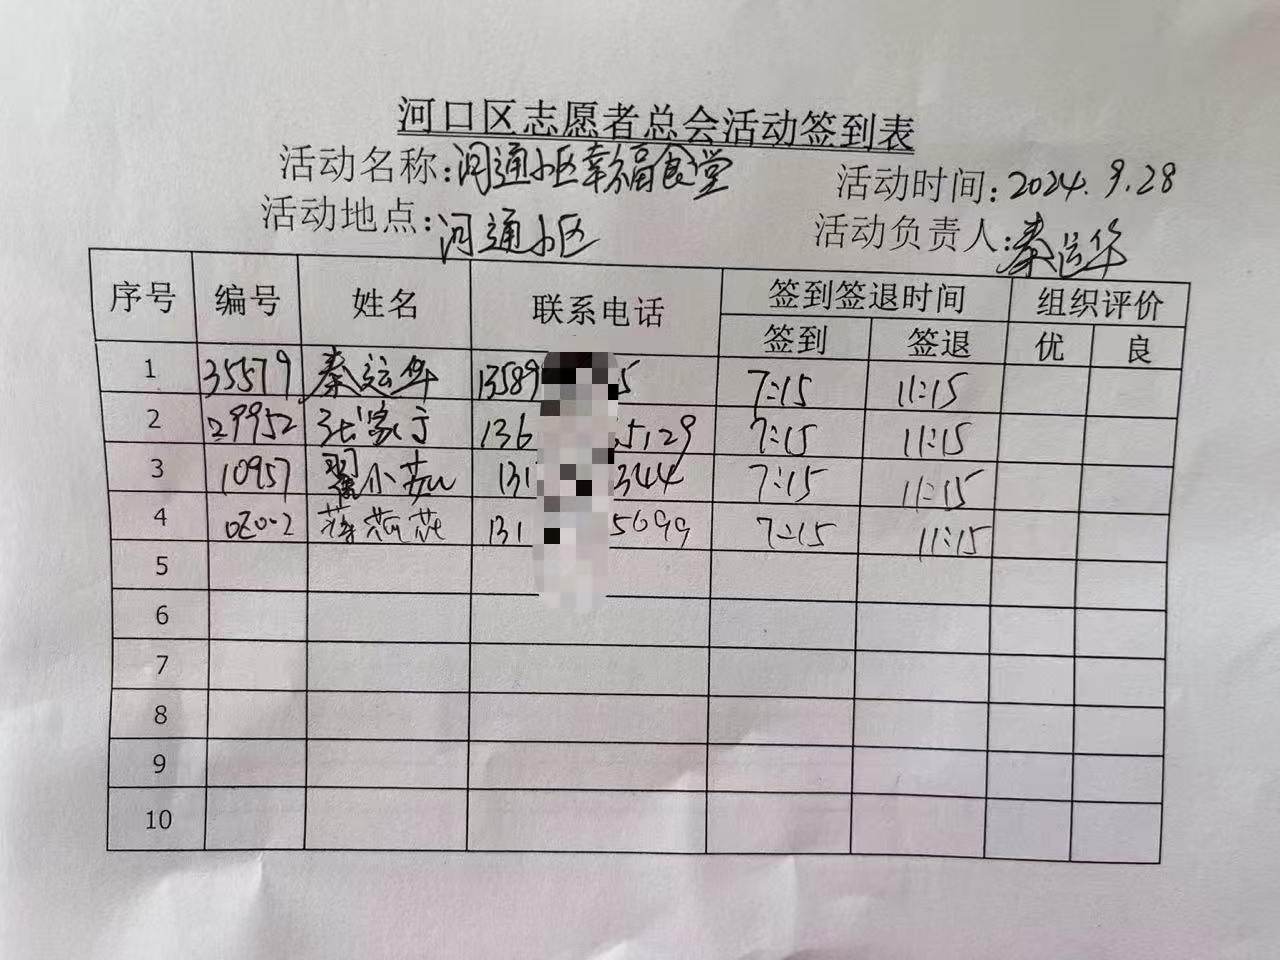 河口区志愿者总会活动签到表
活动名称:河通小区幸福食堂 活动时间:2024.9.28
活动地点:河通小区 活动负责人:秦运华
序号 编号 姓名 联系电话 签到签退时间 组织评价
签到 签退 优 良
1 35579 秦运华 13589 5 7:15 11:15
2 29952 张家于 136 5129 7:15 11:15
3 10957 翟小茹 131 344 7:15 11:15
4 131 5699 7:15 11:15
5
6
7
8
9
10